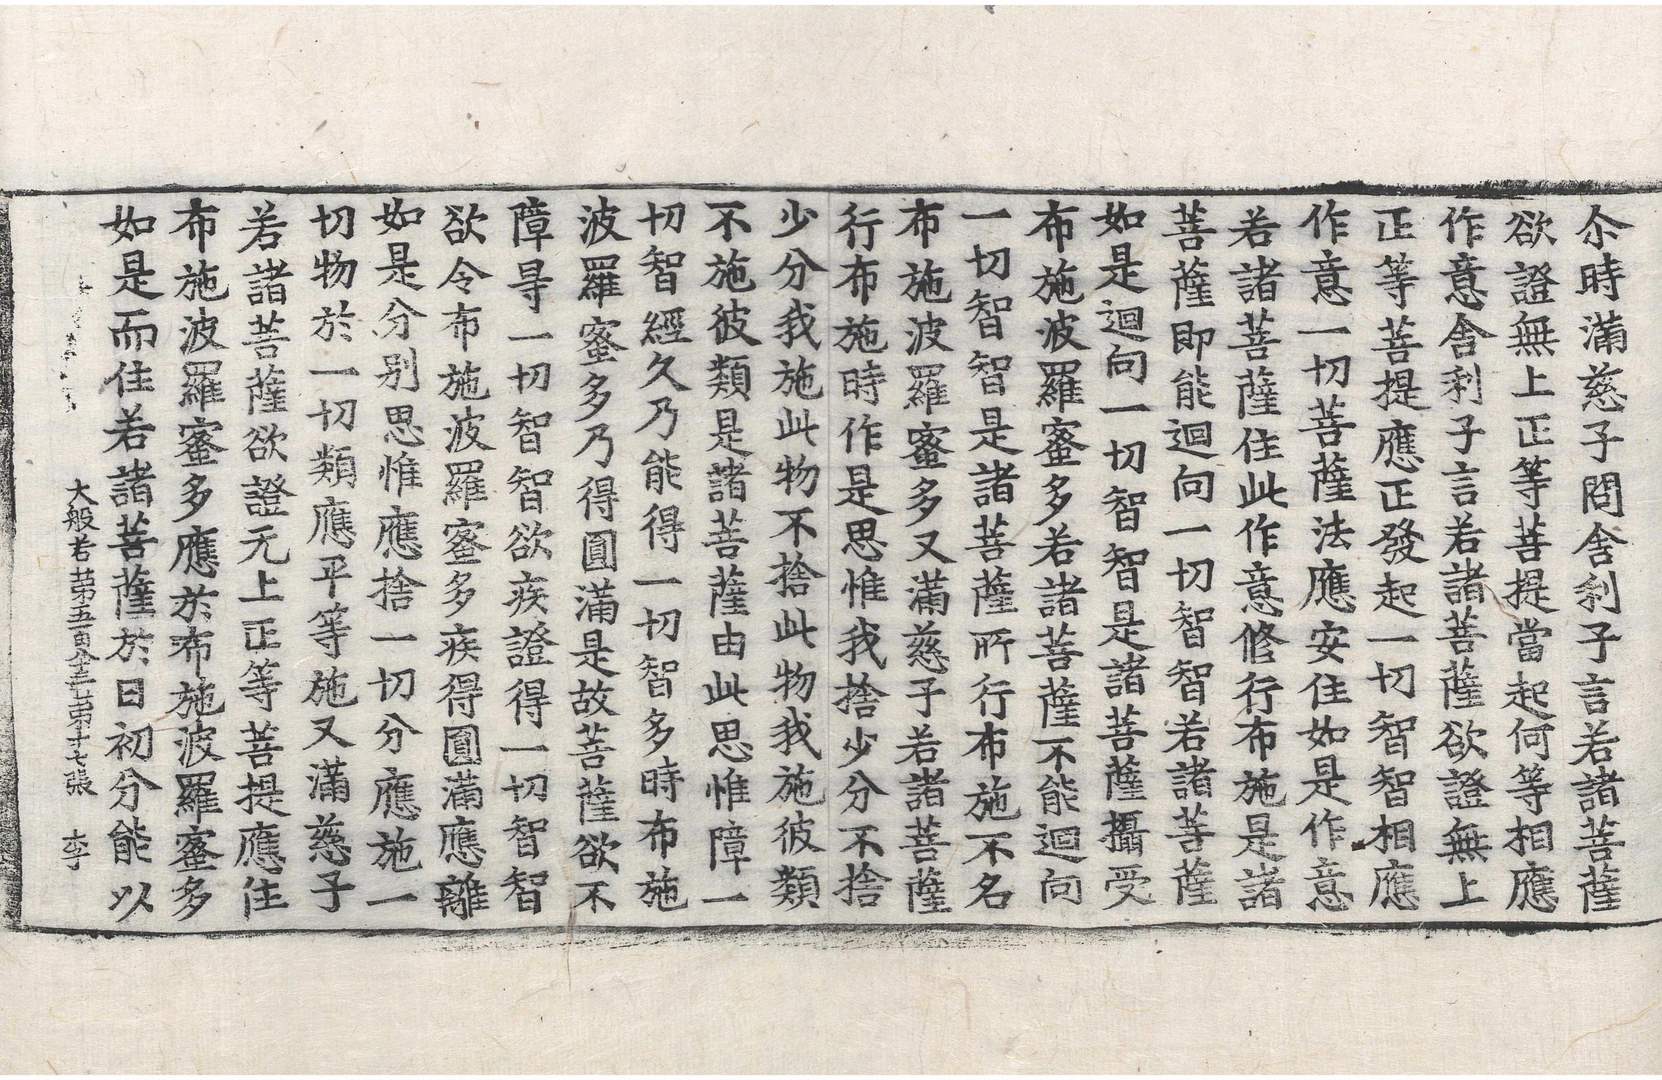 尒時滿慈子問舍利子言若諸菩薩
欲證無上正等菩提當起何等相應
作意舍利子言若諸菩薩欲證無上
正等菩提應正發起一切智智相應
作意一切菩薩法應安住如是作意
若諸菩薩住此作意修行布施是諸
菩薩即能迴向一切智智若諸菩薩
如是迴向一切智智是諸菩薩攝受
布施波羅蜜多若諸菩薩不能迴向
一切智智是諸菩薩所行布施不名
布施波羅蜜多又滿慈子若諸菩薩
行布施時作是思惟我捨少分不捨
少分我施此物不捨此物我施彼類
不施彼類是諸菩薩由此思惟障一
切智經久乃能得一切智多時布施
波羅蜜多乃得圓滿是故菩薩欲不
障㝵一切智智欲疾證得一切智智
欲令布施波羅蜜多疾得圓滿應離
如是分別思惟應捨一切分應施一
切物於一切類應平等施又滿慈子
若諸菩薩欲證无上正等菩提應住
布施波羅蜜多應於布施波羅蜜多
如是而住若諸菩薩於日初分能以
大般若第五百 第十七張 李